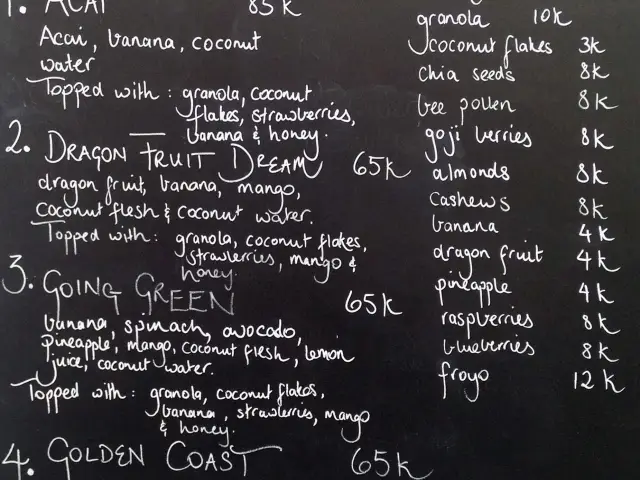 1. ACAI 85K
Acai, banana, coconut
water
Topped with: granola, coconut
flakes, strawberries,
banana & honey.
2. DRAGON FRUIT DREAM 65K
dragon fruit, banana, mango,
coconut flesh & coconut water.
Topped with: granola, coconut flakes,
strawberries, mango &
honey.
3. GOING GREEN 65K
banana, spinach, avocado,
pineapple, mango, coconut flesh, lemon
juice, coconut water.
Topped with: granola, coconut flakes,
banana, strawberries, mango
& honey.
4. GOLDEN COAST 65K
granola 10K
coconut flakes 3K
chia seeds 8K
bee pollen 8K
goji berries 8K
almonds 8K
cashews 8K
banana 4K
dragon fruit 4K
pineapple 4K
raspberries 8K
blueberries 8K
froyo 12K